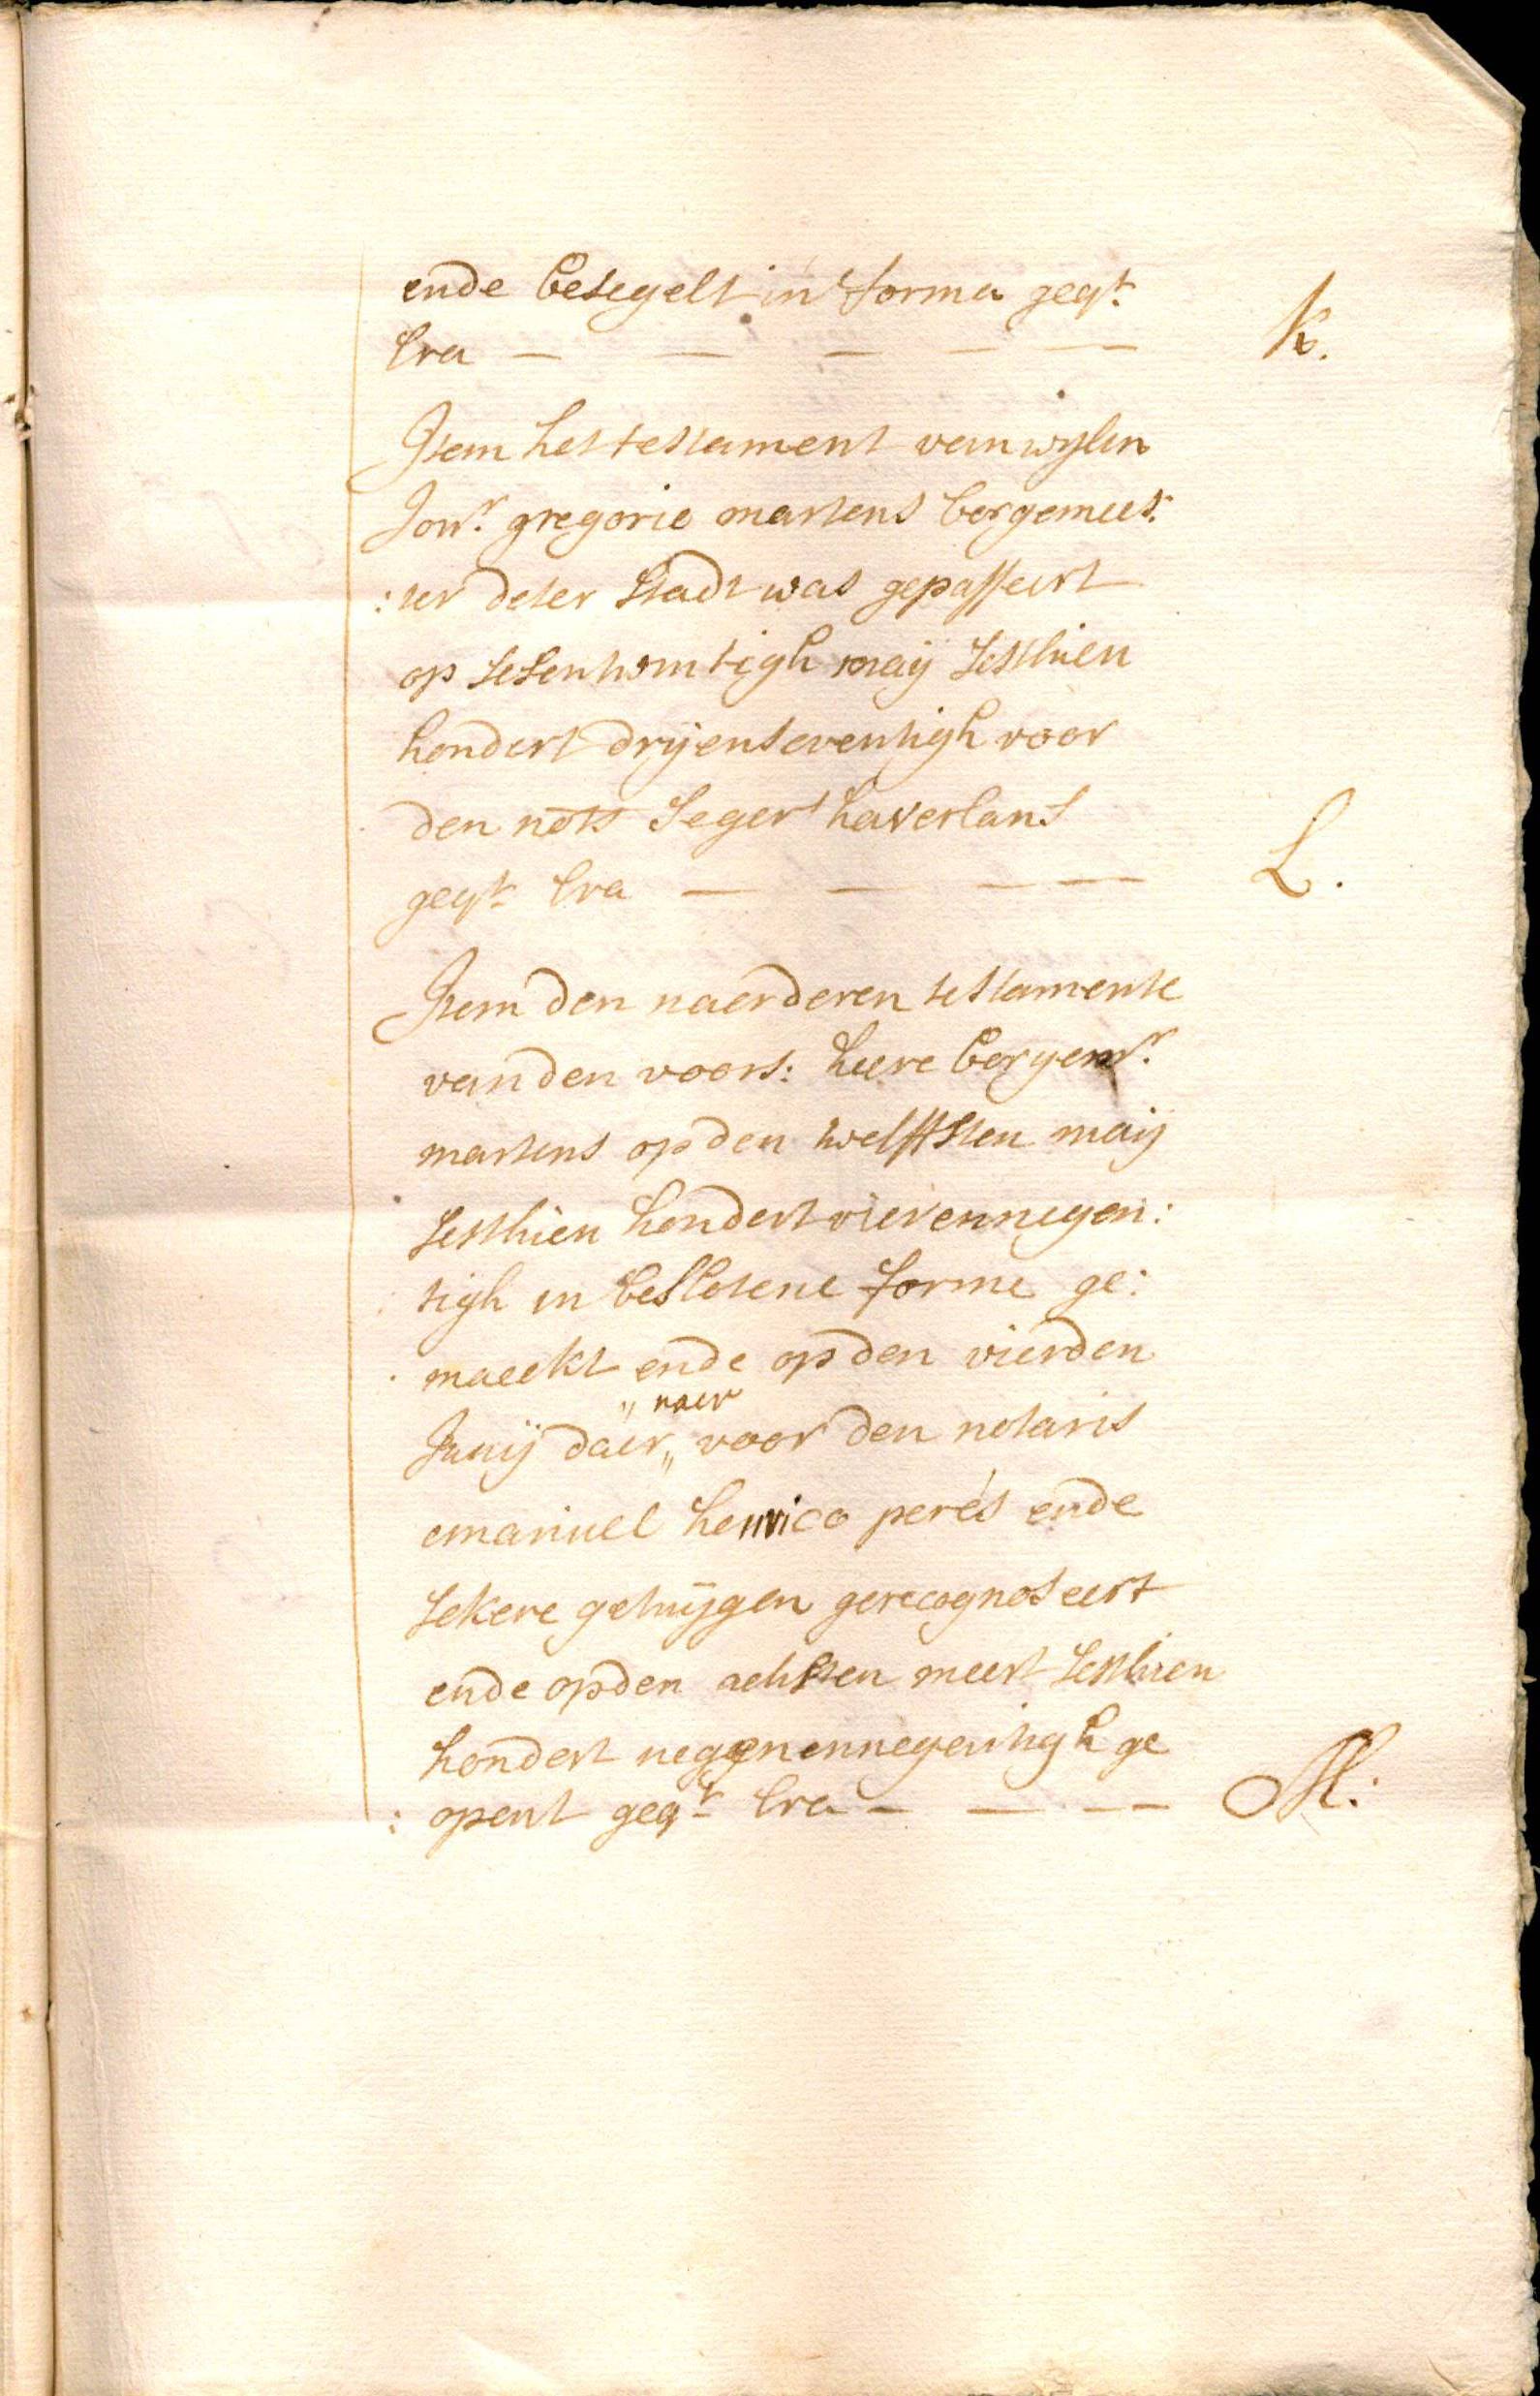 ende besegelt in forma geqt.
lra — — — — — K.
Item het testament van wylen
Jonr. gregorio martens borgemees:
:ter deser stadt was gepasseert
op sesentwintigh maij sesthien
hondert drijentseventigh voor
den nots Seger haverlans
geqt. lra — — — — L.
Item den naerderen testamente
van den voors: heere borgemr.
martens op den twelffsten maij
sesthien hondert vierennegen:
tigh in beslotene forme ge:
maeckt ende op den vierden
„ naer
Junij daer„ voor den notaris
emanuel henrico perés ende
sekere getuijgen gerecognoseert
ende op den achsten meert sesthien
hondert neggenennegentigh ge
: opent geqt. lra — — — M: